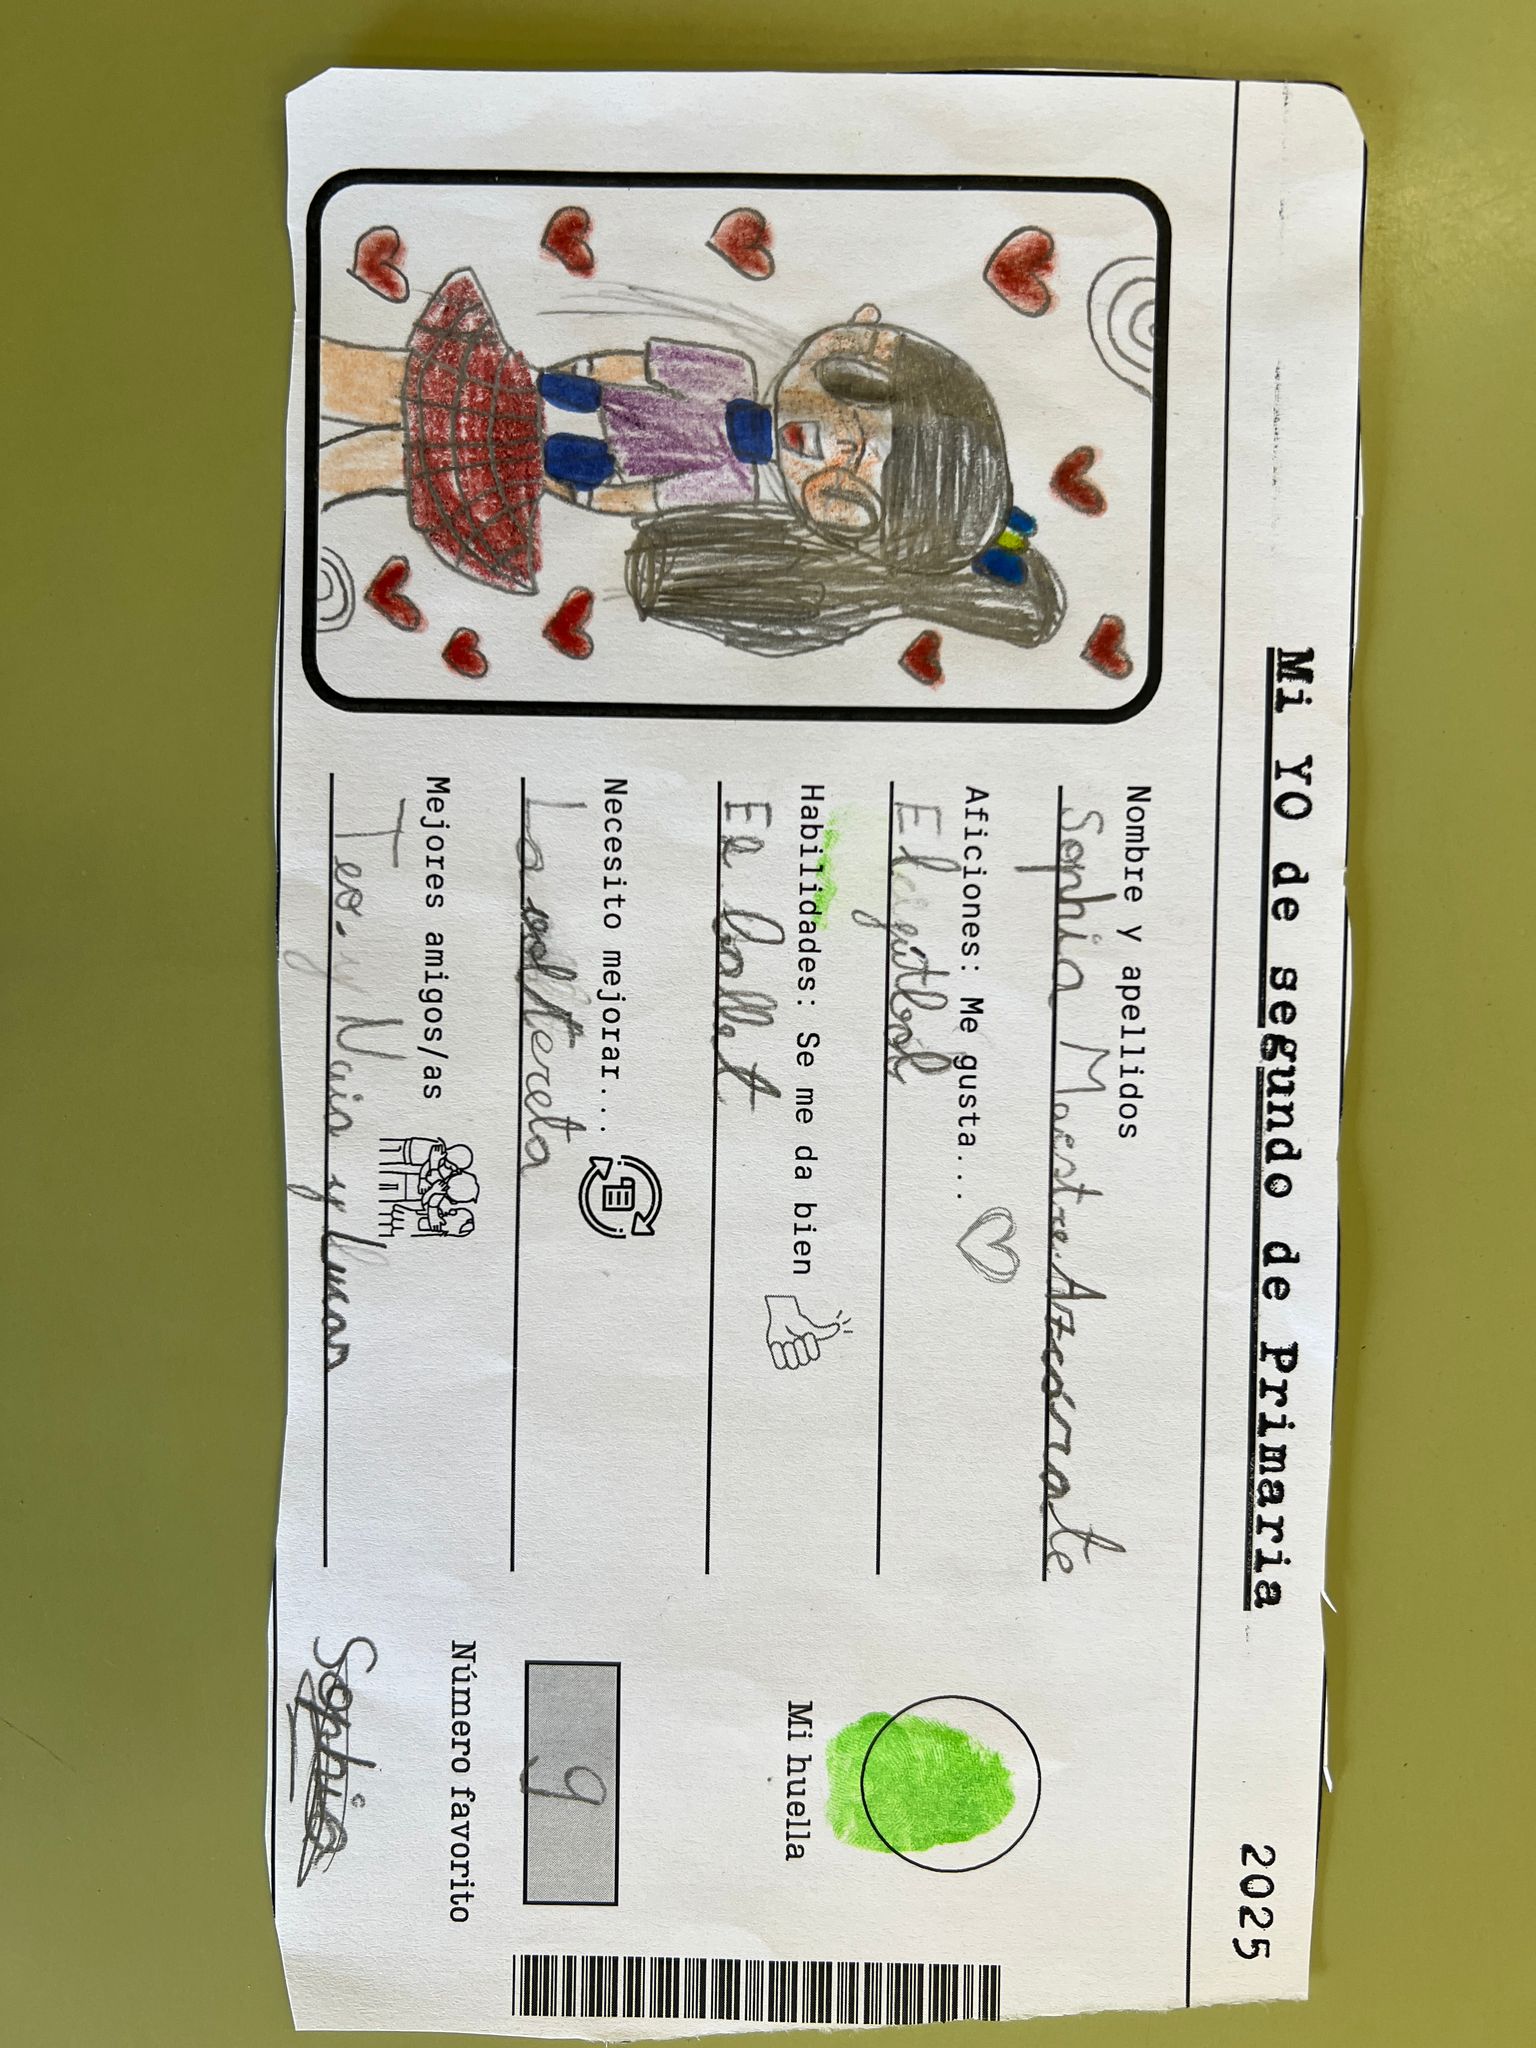 Mi YO de segundo de Primaria
2025
Nombre y apellidos
Sophia Maestre Azcárate
Aficiones: Me gusta...
El fútbol
Habilidades: Se me da bien
El ballet
Necesito mejorar...
La voltereta
Mejores amigos/as
Teo. y Naia y Lucas
Mi huella
9
Número favorito
Sophia